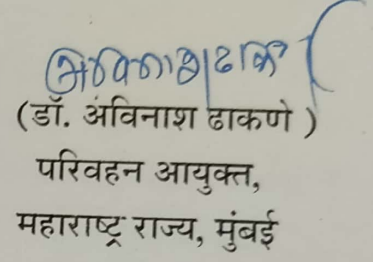 अविनाश ढाकणे
(डॉ. अंविनाश ढाकणे )
परिवहन आयुक्त,
महाराष्ट्र राज्य, मुंबई